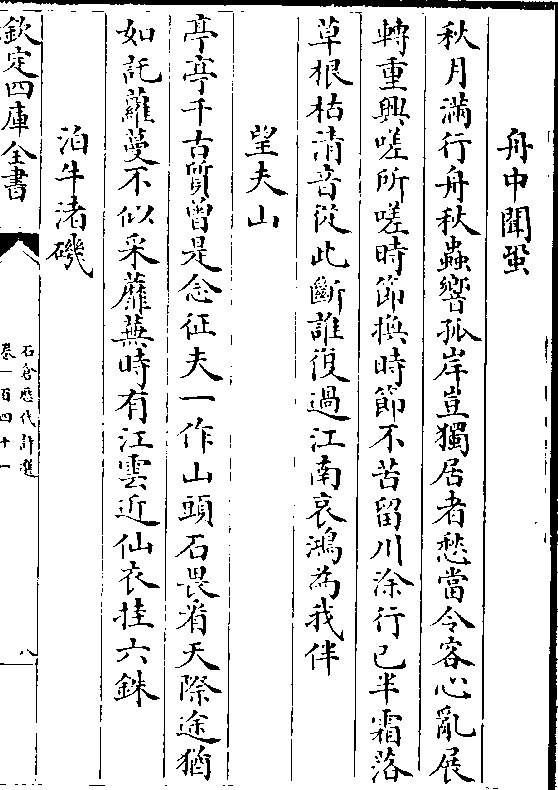 舟中聞蛩
秋月滿行舟秋蟲響孤岸豈獨居者愁當令客心亂展
轉重興嗟所嗟時節換時節不苦留川涂行已半霜落
草根枯清音從此斷誰復過江南哀鴻為我伴
望夫山
亭亭千古質曾是念征夫一作山頭石畏看天際途猶
如託蘿蔓不似采蘼蕪時有江雲近仙衣挂六銖
泊牛渚磯
欽定四庫全書
石倉歷代詩選
卷一百四十一
八